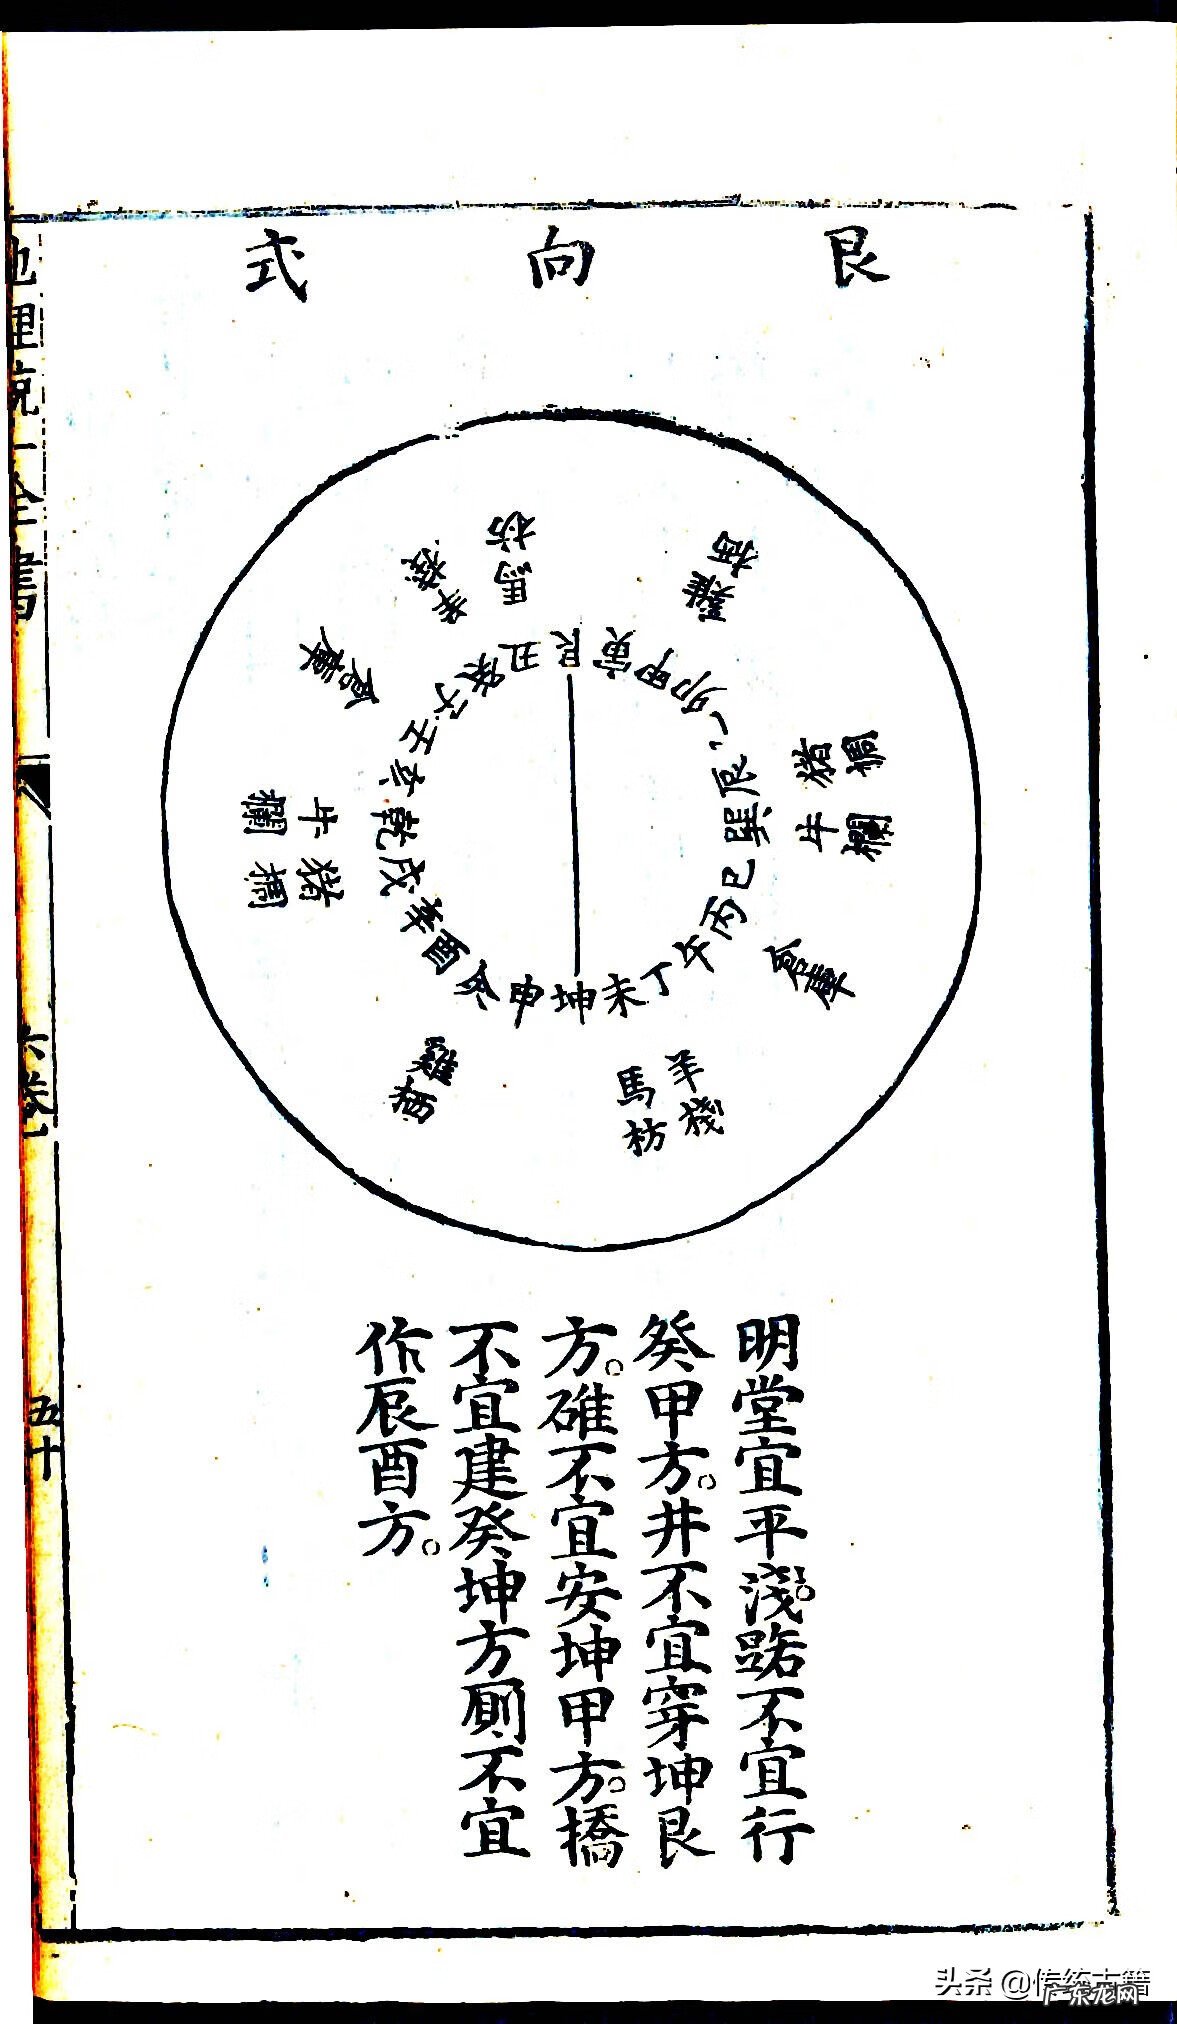 艮向式
艮寅甲卯乙辰巽巳丙午丁未坤申庚酉辛戌乾亥壬子癸丑
雞栖
猪椆
牛欄
倉庫
羊棧
馬枋
雞栖
猪椆
牛欄
倉庫
羊棧
馬枋
明堂宜平淺。路不宜行
癸甲方。井不宜穿坤艮
方。碓不宜安坤甲方。橋
不宜建癸坤方厠不宜
作辰酉方。
地理統一全書
六卷
五十
头条 @传统古籍
广东龙网